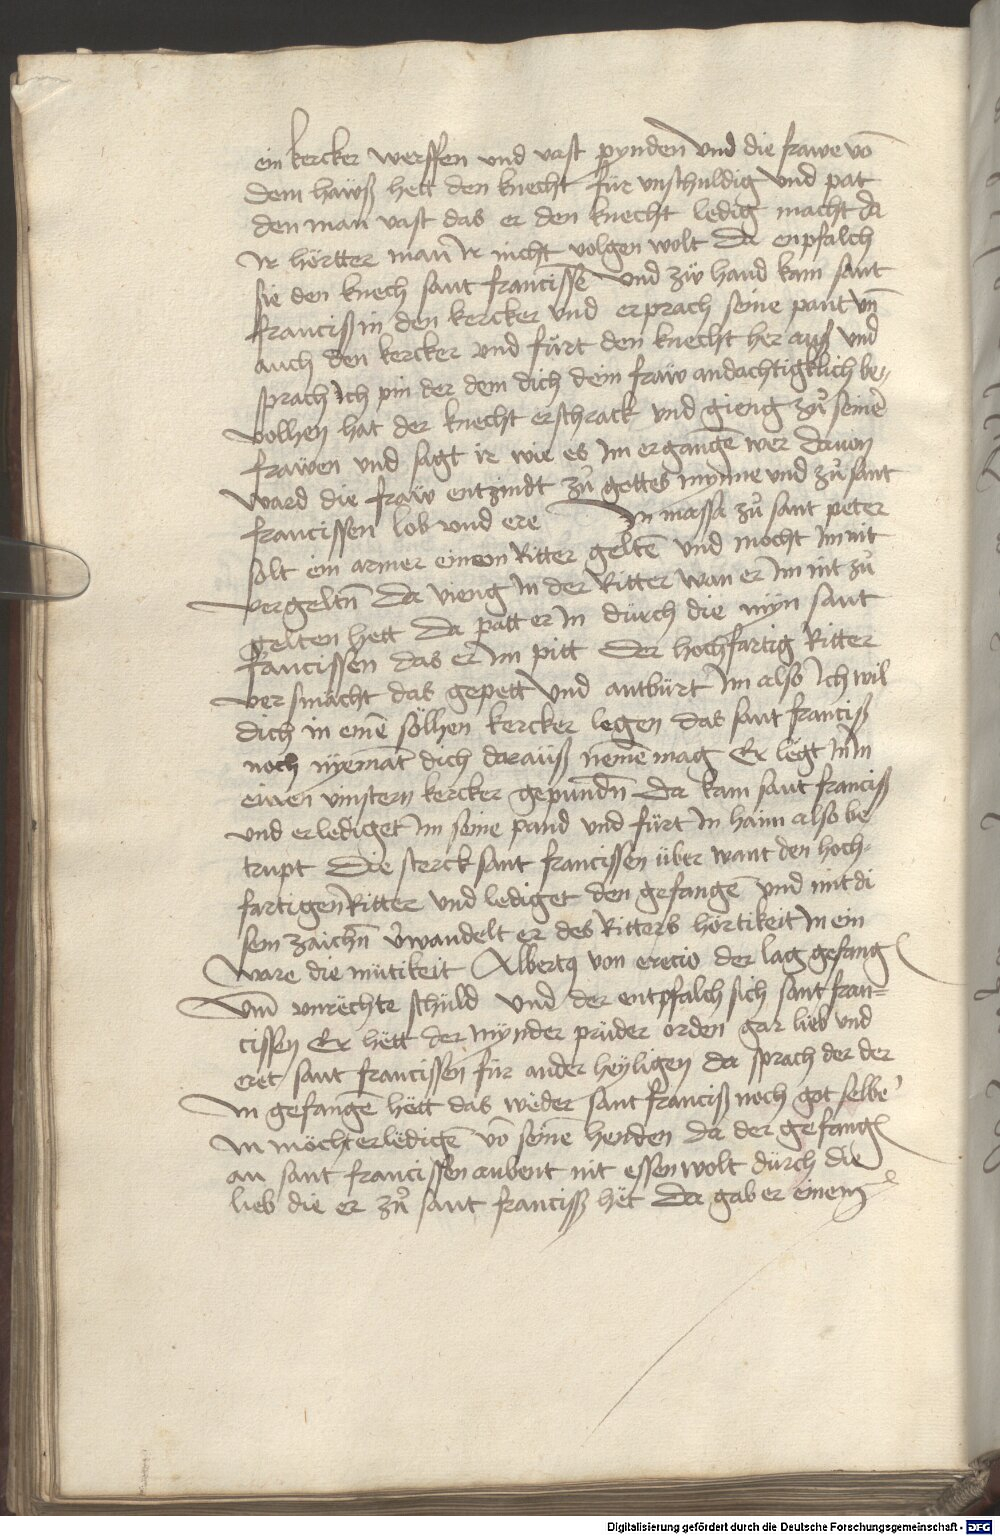 ein kercker werffen und vast pynden und die frawe vō
dem haẅß hett den knecht für unschuldig und pat
den man vast das er den knecht ledig macht da
ir hörtter man ir nicht volgen wolt da enpfalch
sie den knech sant francissē und zü hand kam sant
franciß in den kercker und erprach seine pant un̄
auch den kercker und fürt den knecht her auß und
sprach ich pin der dem dich dein fraw andachtigklich be-
volhen hat der knecht erschrack und gieng zů seiner
fraẅen und sagt ir wie es im ergangē wer davon
ward die fraẅ entzindt zů gottes mynne und zů sant
francissen lob und ere In massa zů sant peter
solt ein armer eineon Ritter geltē und mocht im nit
vergeltn̄ da vieng in der Ritter wan er im nit zů
gelten hett da patt er in dürch die myn sant
fancissen das er im pitt der hochfartig Ritter
versmächt das gepett und antbürt im also ich wil
dich in einē sölhen kercker legen das sant franciß
noch nyemāt dich darauß nemē mag Er legt in in
einen vinstern kercker gepundn̄ da kam sant franciß
und erlediget im seine pand und fürt in haim also be
trupt die sterck sant francissen über want den hoch-
fartigen Ritter und lediget den gefangē und mit di
sem zaichn̄ v̓wandelt er des Ritters hörtikeit in ein
ware diemütikeit Albertus von erecio der lag gefang
um̄ unrechte schuld und der entpfalch sich sant fran=
cissen Er hett der mynder prüder orden gar lieb und
eret sant francissen für ander heyligen da sprach der der
in gefangē hett das weder sant franciß noch got selbe
in möcht erledigē vō seinē henden da der gefang
an sant francissen aubent nit essen wolt dürch die
lieb die er zů sant franciß het da gab er einem
Digitalisierung gefördert durch die Deutsche Forschungsgemeinschaft - DFG